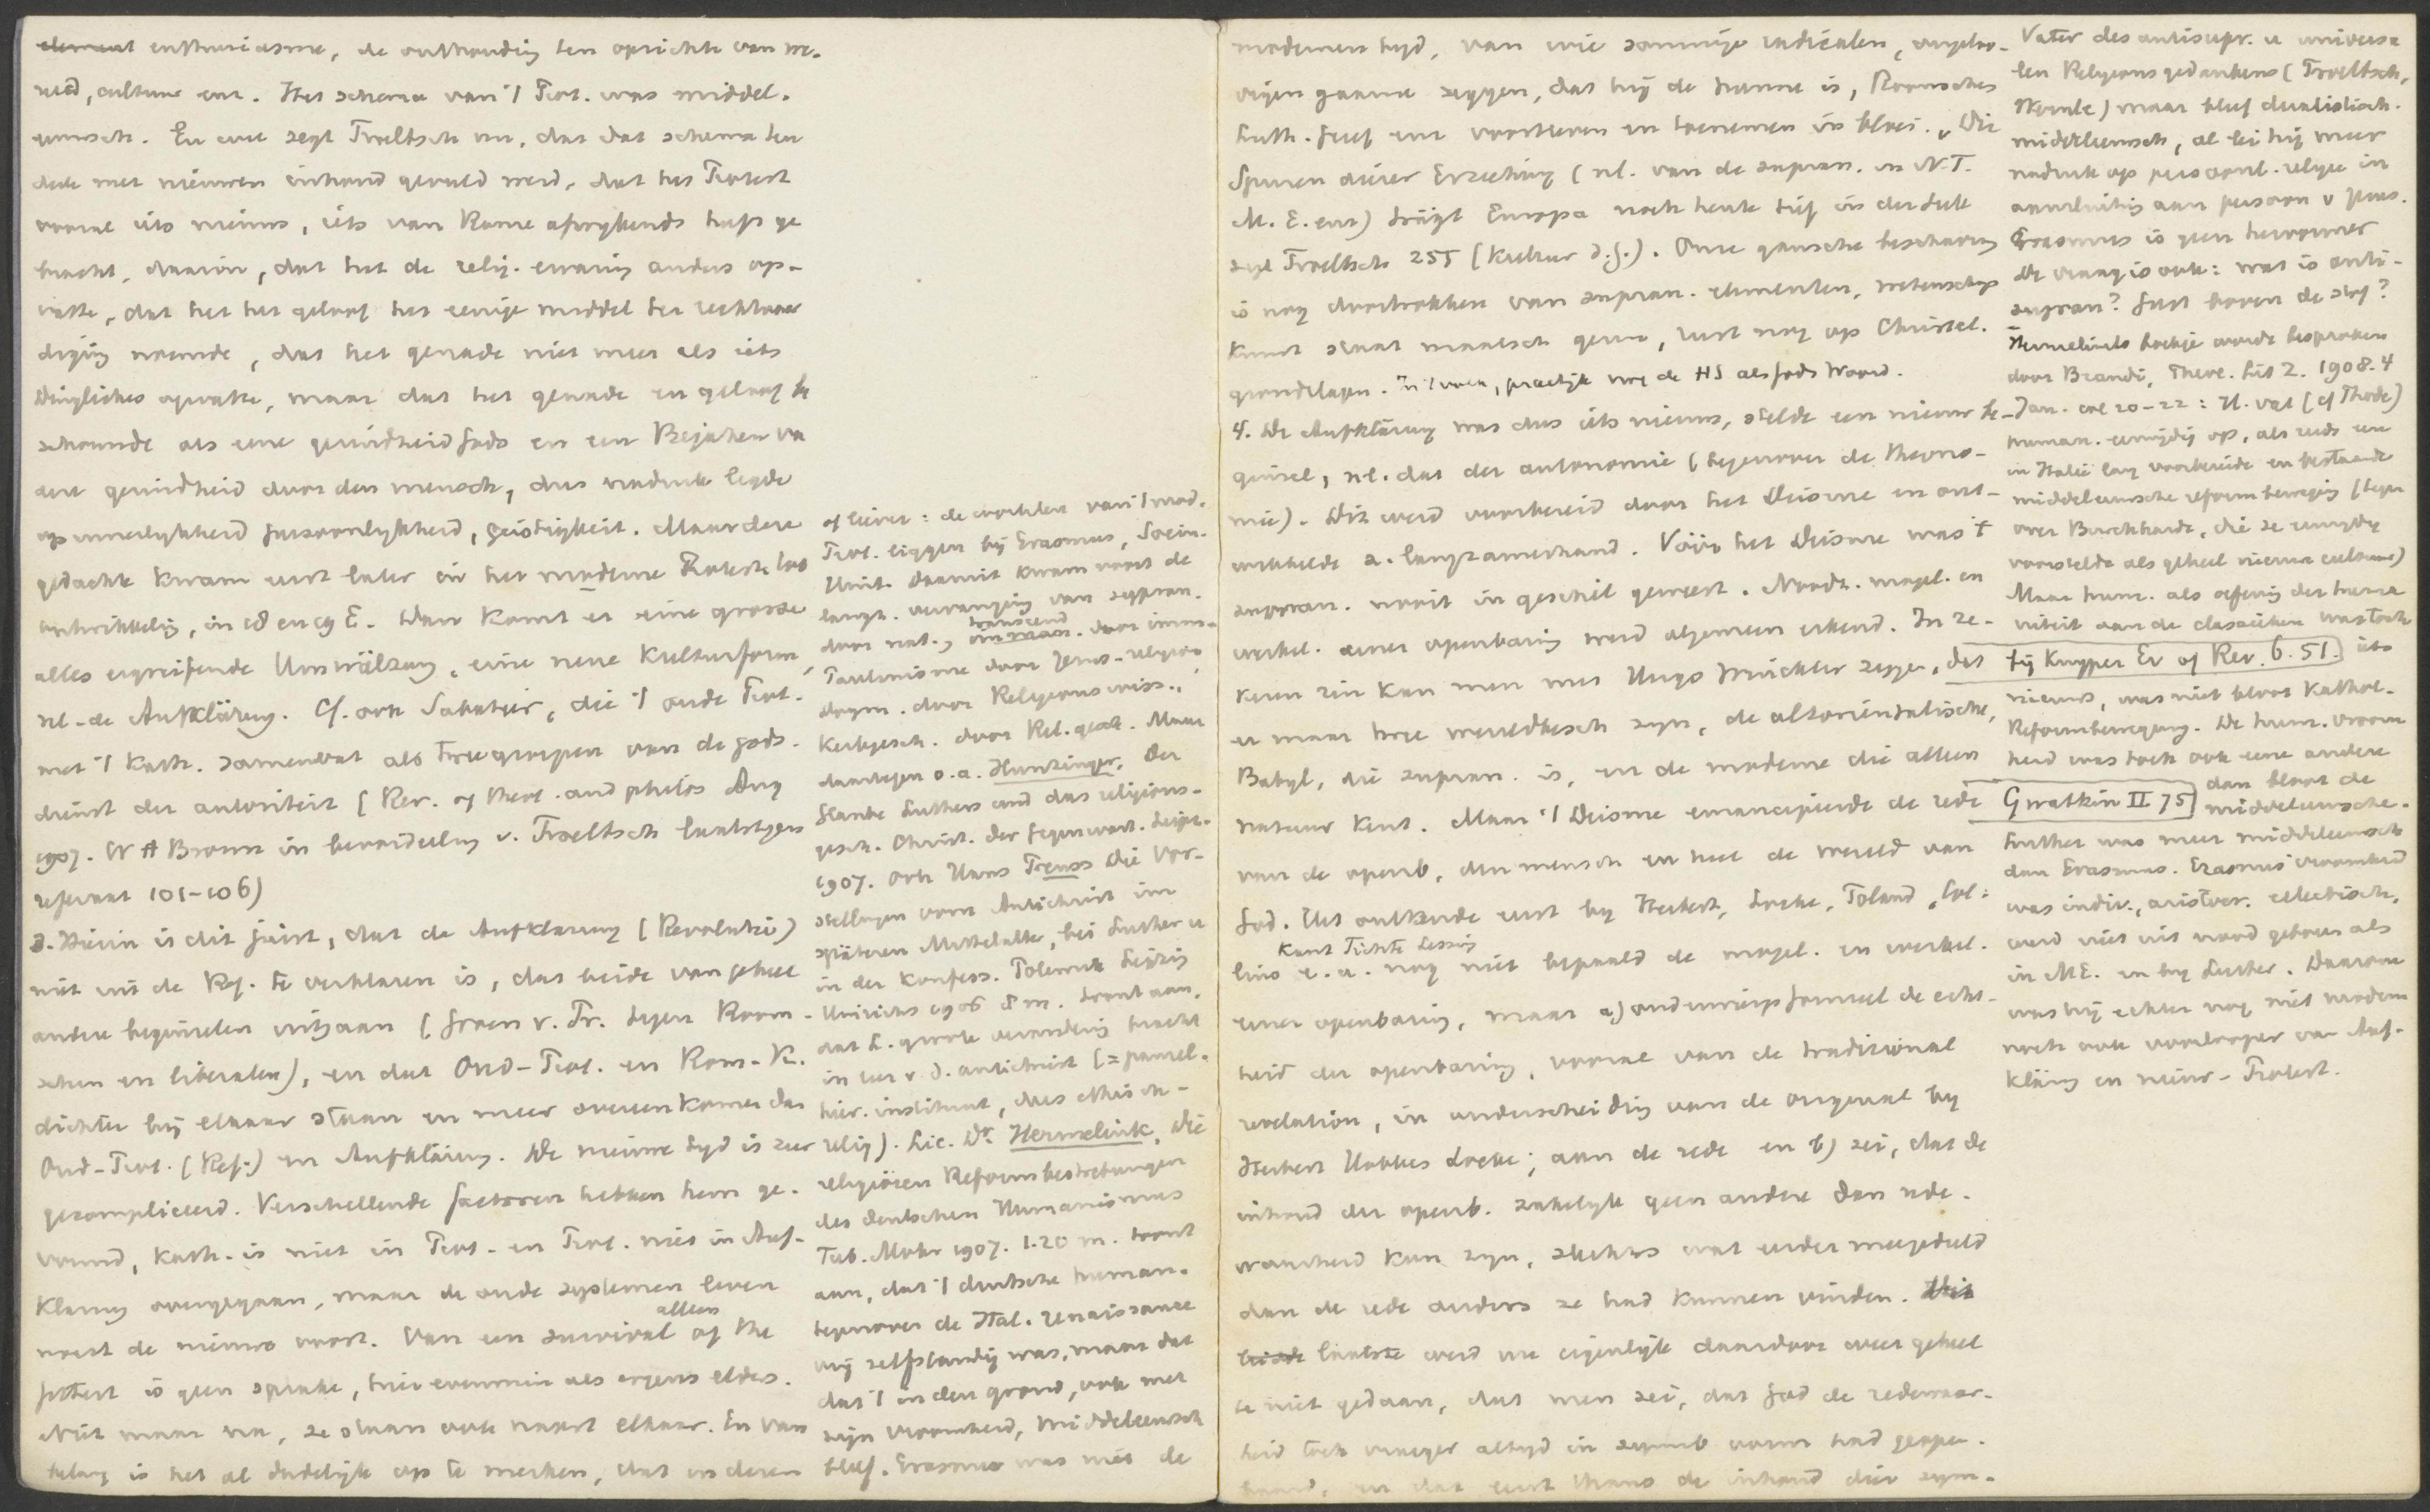 element enthusiasme, de onthouding ten opzichte van we-
reld, cultuur enz. Het schema van 't Prot. was middel-
eeuwsch. En wie zegt Troeltsch nu, dat dat schema ten
deele met nieuwen inhoud gevuld werd, dat het Protest
vooral iets nieuws, iets van Rome afwijkends heeft ge
bracht, daarin, dat het de relig. ervaring anders op-
vatte, dat het het geloof het eenige middel der rechtvaar
diging noemde, dat het genade niet meer als iets
Dingliches opvatte, maar dat het genade en geloof be
schouwde als eene gezindheid Gods en een Bejahen van
die gezindheid door den mensch, dus nadruk legde
op innerlijkheid persoonlijkheid, geistigkeit. Maar deze
gedachte kwam eerst later in het moderne Protest. tot
ontwikkeling, in 18 en 19 E. Dan komt er eine grosse
alles ergreifende Umwälzung, eine neue Kulturform,
nl. de Aufklärung. Cf. ook Sabatier, die 't oude Prot.
met 't Kath. samenvat als twee groepen van de gods-
dienst der autoriteit (Rev. of Theol. and philos Aug
1907. W A Brown in beoordeeling v. Troeltsch laatstgen
referaat 101-106)
3. Hierin is dit juist, dat de Aufklarung (Revolutie)
niet uit de Ref. te verklaren is, dat beide van geheel
andere beginselen uitgaan (Groen v. Pr. tegen Room-
schen en liberalen), en dat Oud-Prot. en Rom-K.
dichter bij elkaar staan en meer overeenkomen dan
Oud-Prot. (Ref.) en Aufklärung. De nieuwe tijd is zeer
gecompliceerd. Verschillende factoren hebben hem ge-
vormd, Kath. is niet in Prot. en Prot. niet in Auf-
klarung overgegaan, maar de oude systemen leven
naast de nieuwe voort. Van een survival alleen of the
fittest is geen sprake, hier evenmin als ergens elders.
Niet maar na, ze staan ook naast elkaar. En van
belang is het al dadelijk op te merken, dat in deren
of liever: de wortelen van 't mod.
Prot. liggen bij Erasmus, Socin.
Unit. Daaruit kwam voort de
langz. vervanging van suppran.
door nat., transcend. door imm-
Paulinisme door Jezus-religie
dogm. door Religionswiss.,
Kerkgesch. door Rel. gesch. Maar
daartegen o.a. Hunzinger. Der
Glaube Luthers und das religions-
gesch. Christ. der Gegenwart. Leipz.
1907. ook Hans Preuss Die Vor-
stellungen vom Antichrist im
späteren Mittelalter, bei Luther u
in der Konfess. Polemik Leipzig
Hinrichs 1906 8 m. toont aan,
dat L. groote verandering bracht
in leer v. d. antichrist (= pausel.
hier. instituut, dus ethisch-
relig). Lic. Dr. Hermelink, Die
religiösen Reformbestrebungen
des deutschen Humanismus
Tub. Mohr 1907. 1.20 m. toont
aan, dat 't duitsche human.
tegenover de Ital. renaissance
vrij zelfstandig was, maar dat
dat 't in den grond, ook met
zijn vroomheid, middeleeuwsch
bleef. Erasmus was niet de
modernen tijd, van wie sommige radicalen, ongeloo-
vigen gaarne zeggen, dat hij de hunne is, Roomsches
Luth. Geref enz voortleven en toenemen in bloei. „Die
Spuren dieser Erziehung (nl. van de supran. in N.T.
M.E. enz) trägt Europa noch heute tief in der Seele
zegt Troeltsch 255 (Kultur d. G.). Onze gansche beschaving
is nog doortrokken van supran. elementen, wetenschap
kunst staat maatsch gezin, rust nog op Christel.
grondslagen. In 't volk, practijk nog de HS als Gods Woord.
4. De Aufklärung was dus iets nieuws, stelde een nieuw be-
ginsel, nl. dat der autonomie (tegenover de theono-
mie). Dit werd voorbereid door het Deisme en ont-
wikkelde z. langzamerhand. Vóór het Deisme was 't
suppran. nooit in geschil geweest. Noodz. mogel. en
werkel. eener openbaring werd algemeen erkend. In ze-
keren zin kan men met Hugo Winckler zeggen, dat
er maar twee wereldbesch zijn, de altorientalische,
Babyl, die supran. is, en de moderne die alleen
natuur kent. Maar 't Deisme emancipeerde de rede
van de openb, den mensch en heel de wereld van
God. Het ontkende eerst bij Herbert, Locke, Toland, Col-
lins e.a. Kant Fichte Lessing nog niet bepaald de mogel. en werkel.
eener openbaring, maar a) onderwierp formeel de echt-
heid der openbaring, vooral van de traditional
revelation, in onderscheiding van de original bij
Herbert Hobbes Locke; aan de rede en b) zei, dat de
inhoud der openb. zakelijk geen andere dan rede-
waarheid kan zijn, slechts wat eerder meegedeeld
dan de rede anders ze had kunnen vinden. Dit
beide laatste werd nu eigenlijk daardoor weer geheel
te niet gedaan, dat men zei, dat God de redewaar-
heid toch vroeger altijd in symb vorm had geopen-
baard, en dat eerst thans de inhoud dier sym-
Vater des antisupr. u universa
len Religionsgedankens (Troeltsch,
Wernle) maar bleef dualistisch-
middeleeuwsch, al lei hij meer
nadruk op persoonl. religie in
aansluiting aan persoon v Jezus.
Erasmus is geen hervormer
De vraag is ook: wat is anti-
supran? Gust boven de stof?
Hermelinks boekje wordt besproken
door Brandi, Theol. Lit Z. 1908. 4
Jan. col 20-22: H. vat (cf Thode)
human. eenzijdig op, als reeds een
in Italië lang voorbereide en bestaande
middeleeuwsche reformbeweging (tegen
over Burckhardt, die ze eenzijdig
voorstelde als geheel nieuwe cultuur)
Maar hum. als oefening der huma
niteit aan de classieken was toch
bij Kuyper Ev of Rev. 6. 51. iets
nieuws, was niet bloot Kathol.
Reformbewegung. De hum. vroom
heid was toch ook eene andere
Gwatkin II 75 dan bloot de
middeleeuwsche.
Luther was meer middeleeuwsch
dan Erasmus. Erasmus' vroomheid
was indiv., aristocr. eclectisch,
werd niet uit nood geboren als
in ME. en bij Luther. Daarom
was hij echter nog niet modern
noch ook voorlooper van Auf-
klärung en nieuw-Protest.